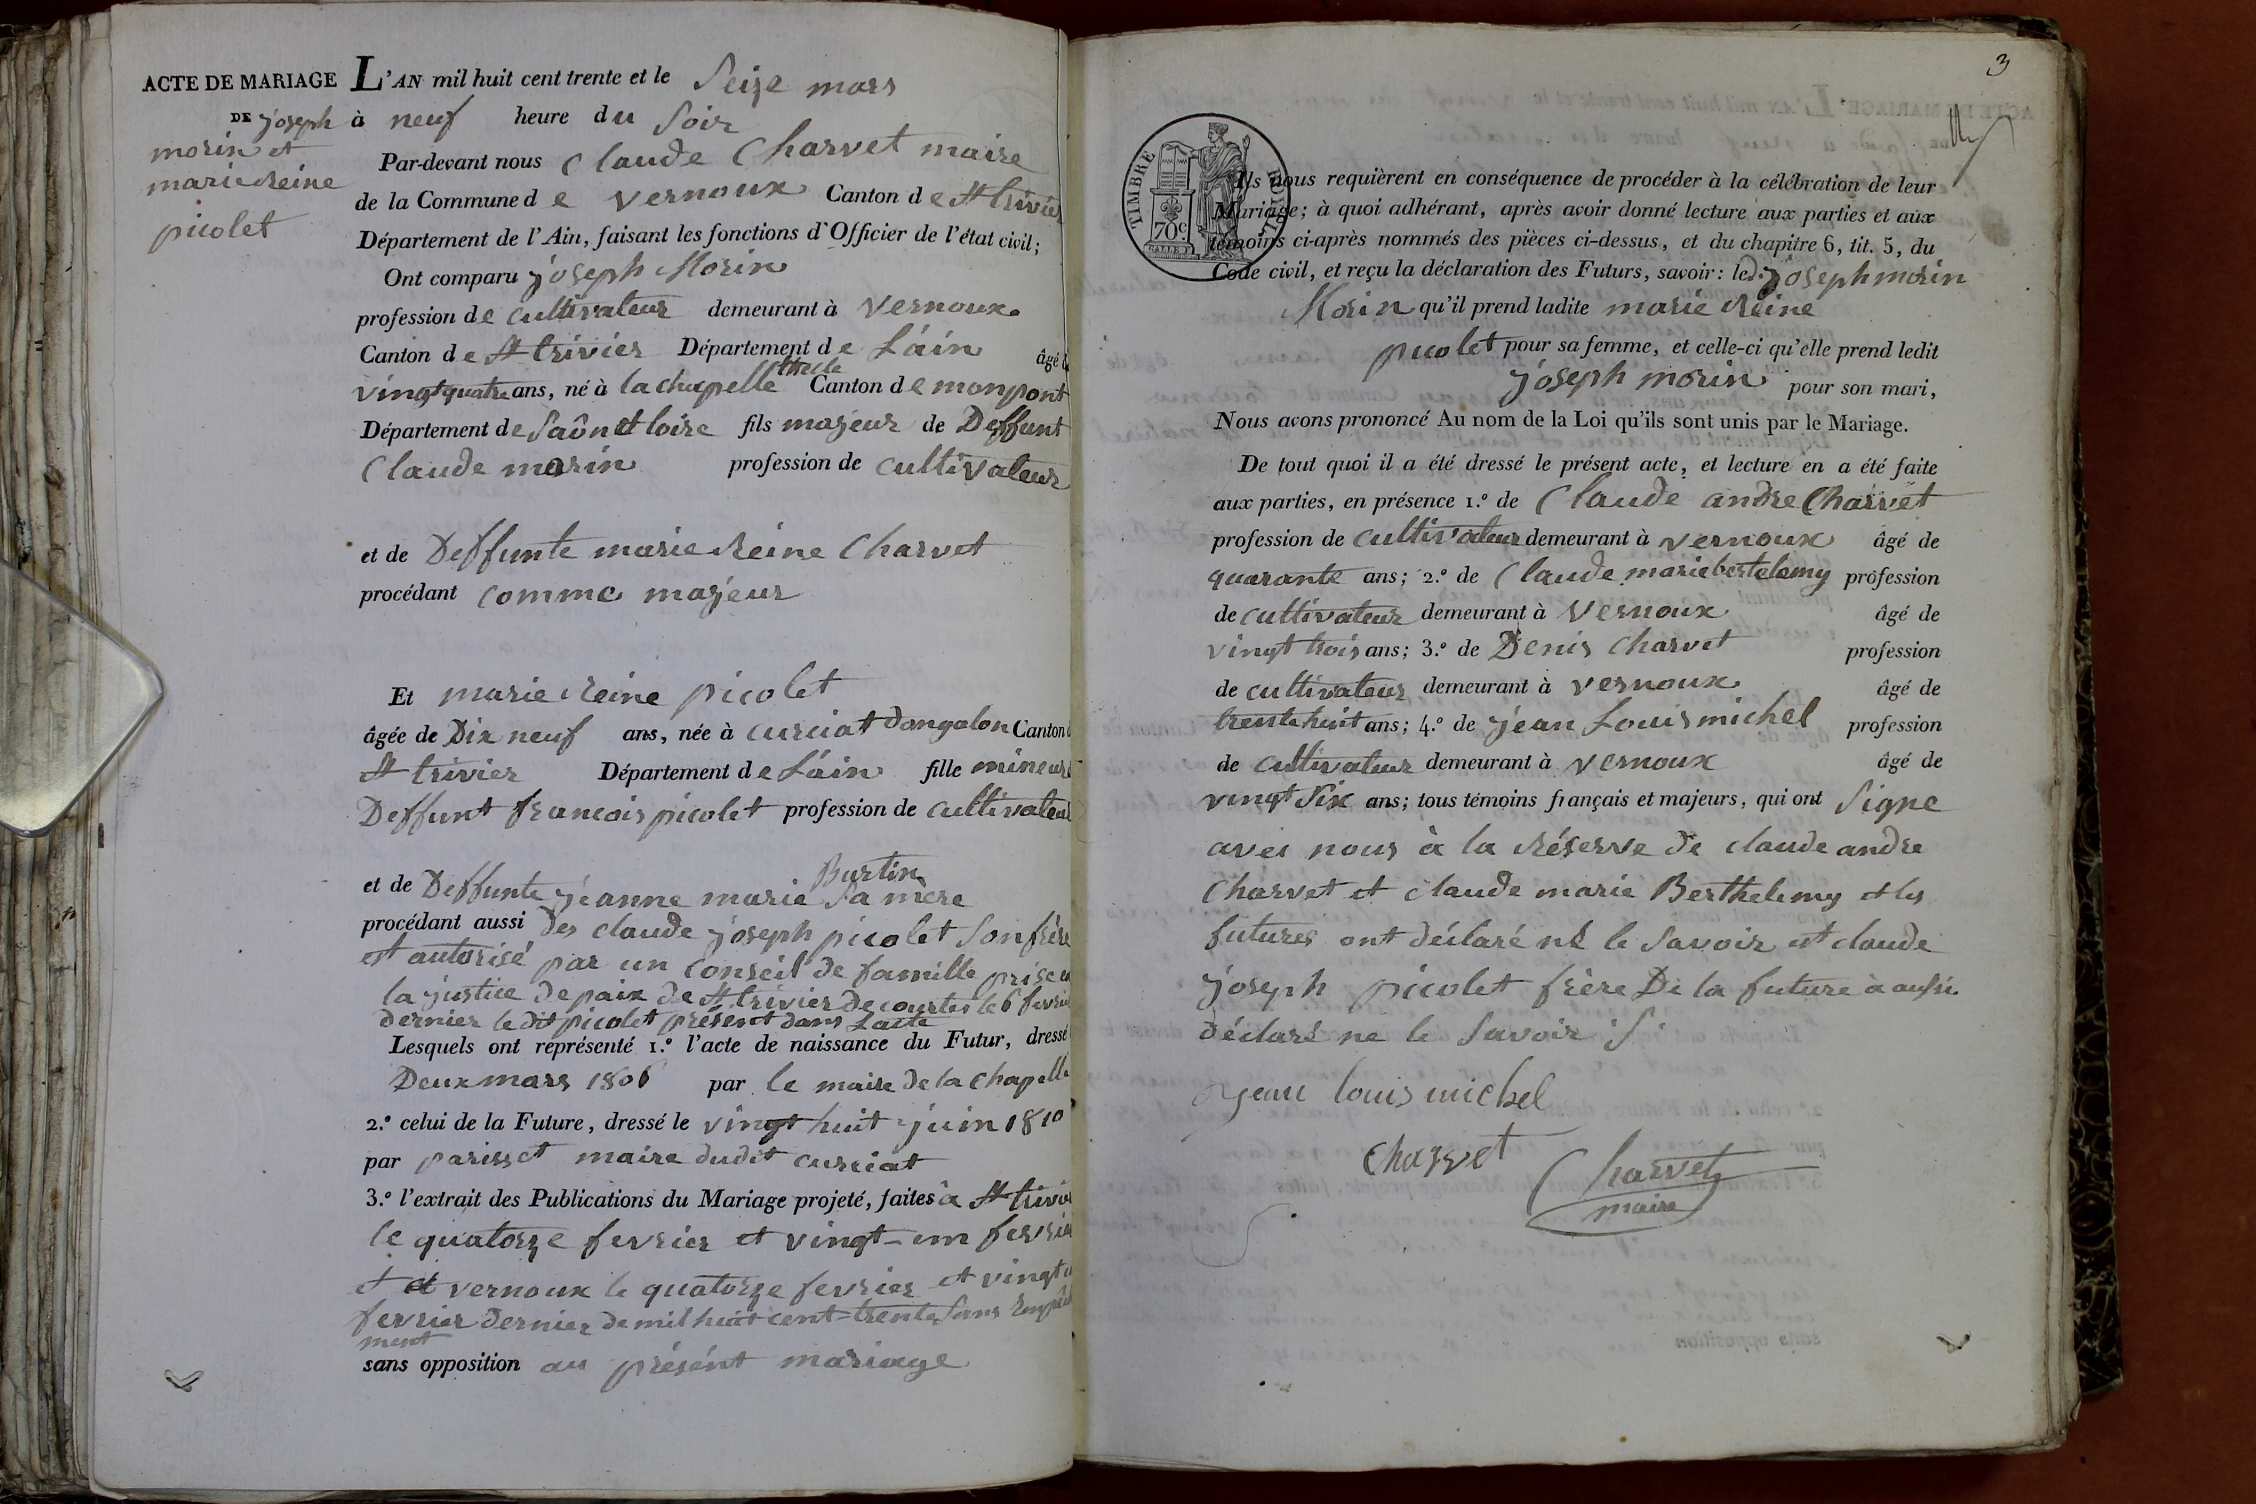 ACTE DE MARIAGE
DE joseph
morin et
marie Reine
picolet
L'AN mil huit cent trente et le Seize mars
à neuf heure du Soir
Par-devant nous Claude Charvet maire
de la Commune de vernoux Canton de St trivier
Département de l'Ain, faisant les fonctions d'Officier de l'état civil;
Ont comparu joseph Morin
profession de cultivateur demeurant à vernoux
Canton de St trivier Département de L'ain âgé de
vingt quatre ans, né à la chapelle thecle Canton de monpont
Département de Saôn et loire fils majeur de Deffunt
Claude morin profession de cultivateur
et de Deffunte marie Reine Charvet
procédant comme majeur
Et marie Reine picolet
âgée de Dix neuf ans, née à curciat dongalon Canton d
St trivier Département de L'ain fille mineure
Deffunt francois picolet profession de cultivateur
et de Deffunte jeanne marie Burtin Sa mère
procédant aussi des claude joseph picolet Son frère
et autorisé par un conseil de famille prise a
la justice de paix de St trivier de courtes le 6 fevrier
dernier le dit picolet présent dans L'acte
Lesquels ont représenté 1.º l'acte de naissance du Futur, dressé
Deux mars 1806 par le maire de la chapelle
2.º celui de la Future, dressé le vingt huit juin 1810
par parisset maire dudit curciat
3.º l'extrait des Publications du Mariage projeté, faites à St trivier
le quatorze fevrier et vingt-un fevrier
et a vernoux le quatorze fevrier et vingt u
fevrier dernier de mil huit cent trente Sans Empêche
ment
sans opposition au présént mariage
3
TIMBRE ROYAL
70c
Ils nous requièrent en conséquence de procéder à la célébration de leur
Mariage; à quoi adhérant, après avoir donné lecture aux parties et aux
témoins ci-après nommés des pièces ci-dessus, et du chapitre 6, tit. 5, du
Code civil, et reçu la déclaration des Futurs, savoir: led. joseph morin
Morin qu'il prend ladite marie Reine
picolet pour sa femme, et celle-ci qu'elle prend ledit
joseph morin pour son mari,
Nous avons prononcé Au nom de la Loi qu'ils sont unis par le Mariage.
De tout quoi il a été dressé le présent acte, et lecture en a été faite
aux parties, en présence 1.º de Claude andre Charvet
profession de cultivateur demeurant à vernoux âgé de
quarante ans; 2.º de Claude marie bertelemy profession
de cultivateur demeurant à vernoux âgé de
vingt trois ans; 3.º de Denis Charvet profession
de cultivateur demeurant à vernoux âgé de
trente huit ans; 4.º de jean Louis michel profession
de cultivateur demeurant à vernoux âgé de
vingt Six ans; tous témoins français et majeurs, qui ont Signe
avec nous à la Réserve de claude andre
Charvet et claude marie Berthelemy et les
futures ont déclaré ne le Savoir et claude
joseph picolet frère De la future à aussi
déclaré ne le Savoir
jean louis michel
Charvet
Charvet
maire